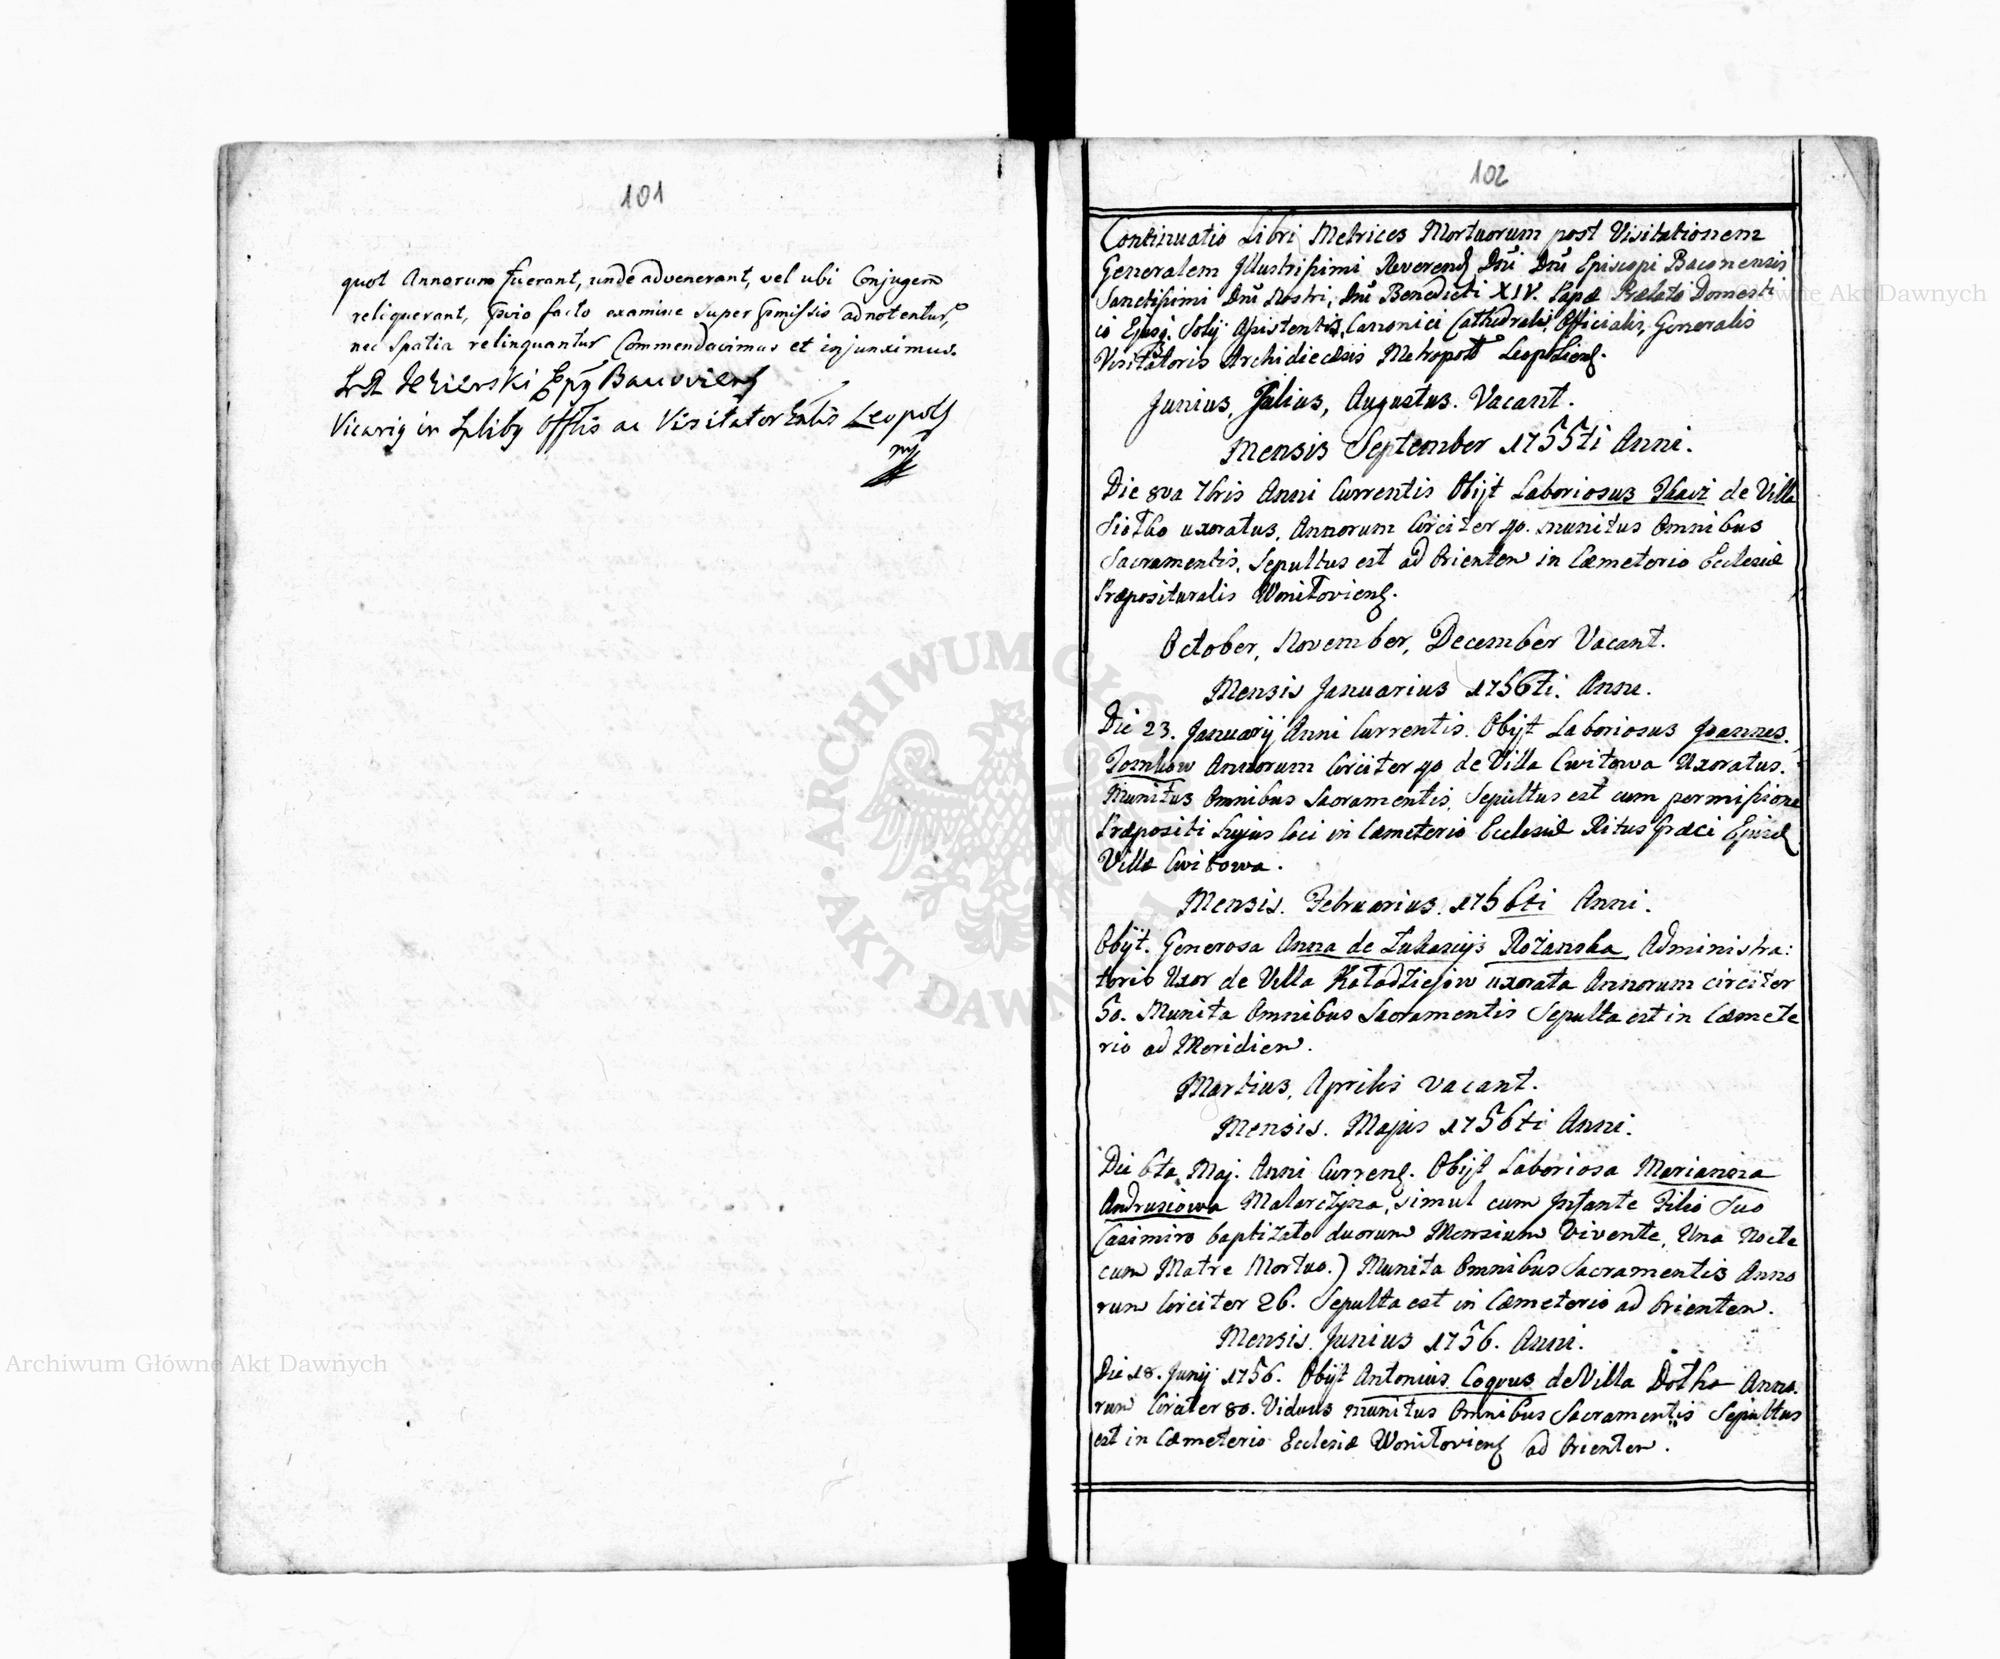 101
quot Annorum fuerant, unde advenerant, vel ubi Conjugem
reliquerant, facto examine super adnotentur,
nec Spatia relinquantur Commendavimus et injunximus.
Epȳ
Vicariȳ in Offlis ac Visitator Leopol
102
Continuatio Libri Metrices Mortuorum post Visitationem
Generalem Illustrissimi Reverend Dni Dni Episcopi Baconensis
Sanctissimi Dni Nostri, Dni Benedicti XIV. Papæ Prælati Domesti
Solij Assistentis, Canonici Cathedralis, Officialis, Generalis
Visitatoris Archidiecesis
Junius, Julius, Augustus. Vacant.
Mensis September 1755ti Anni.
Die 8va 7bris Anni Currentis Obijt Laboriosus de Villa
uxoratus, Annorum Circiter 40. munitus Omnibus
Sacramentis, Sepultus est ad Orientem in Cæmeterio Ecclesiæ
Præposituralis
October, November, December Vacant.
Mensis Januarius 1756ti. Anni.
Die 23. Januarij Anni Currentis. Obijt Laboriosus Joannes.
Annorum Circiter 40 de Villa Cwitowa Uxoratus.
Munitus Omnibus Sacramentis, Sepultus est cum permissione
Præpositi hujus loci in Cæmeterio Ecclesiæ Ritus Græci
Villæ Cwitowa.
Mensis. Februarius. 1756ti Anni.
Obijt. Generosa Anna de Administra:
toris Uxor de Villa uxorata Annorum circiter
50. Munita Omnibus Sacramentis Sepulta est in Cæmete
rio ad Meridiem.
Martius, Aprilis vacant.
Mensis. Majus 1756ti Anni.
Die 6ta Maj. Anni Obijt Laboriosa Marianna
Andrusiowa Malarczyna, simul cum Infante Filio Suo
Casimiro baptizato duorum Mensium Vivente, Una Nocte
cum Matre Mortuo.) Munita Omnibus Sacramentis Anno
rum Circiter 26. Sepulta est in Cæmeterio ad Orientem.
Mensis. Junius 1756. Anni.
Die 18. Junij 1756. Obijt Antonius Coquus de Villa Anno.
rum Circiter 80. Viduus munitus Omnibus Sacramentis Sepultus
est in Cæmeterio Ecclesiæ ad Orientem.
Archiwum Główne Akt Dawnych
Główne Akt Dawnych
A. ARCHIWUM AKT DAWN